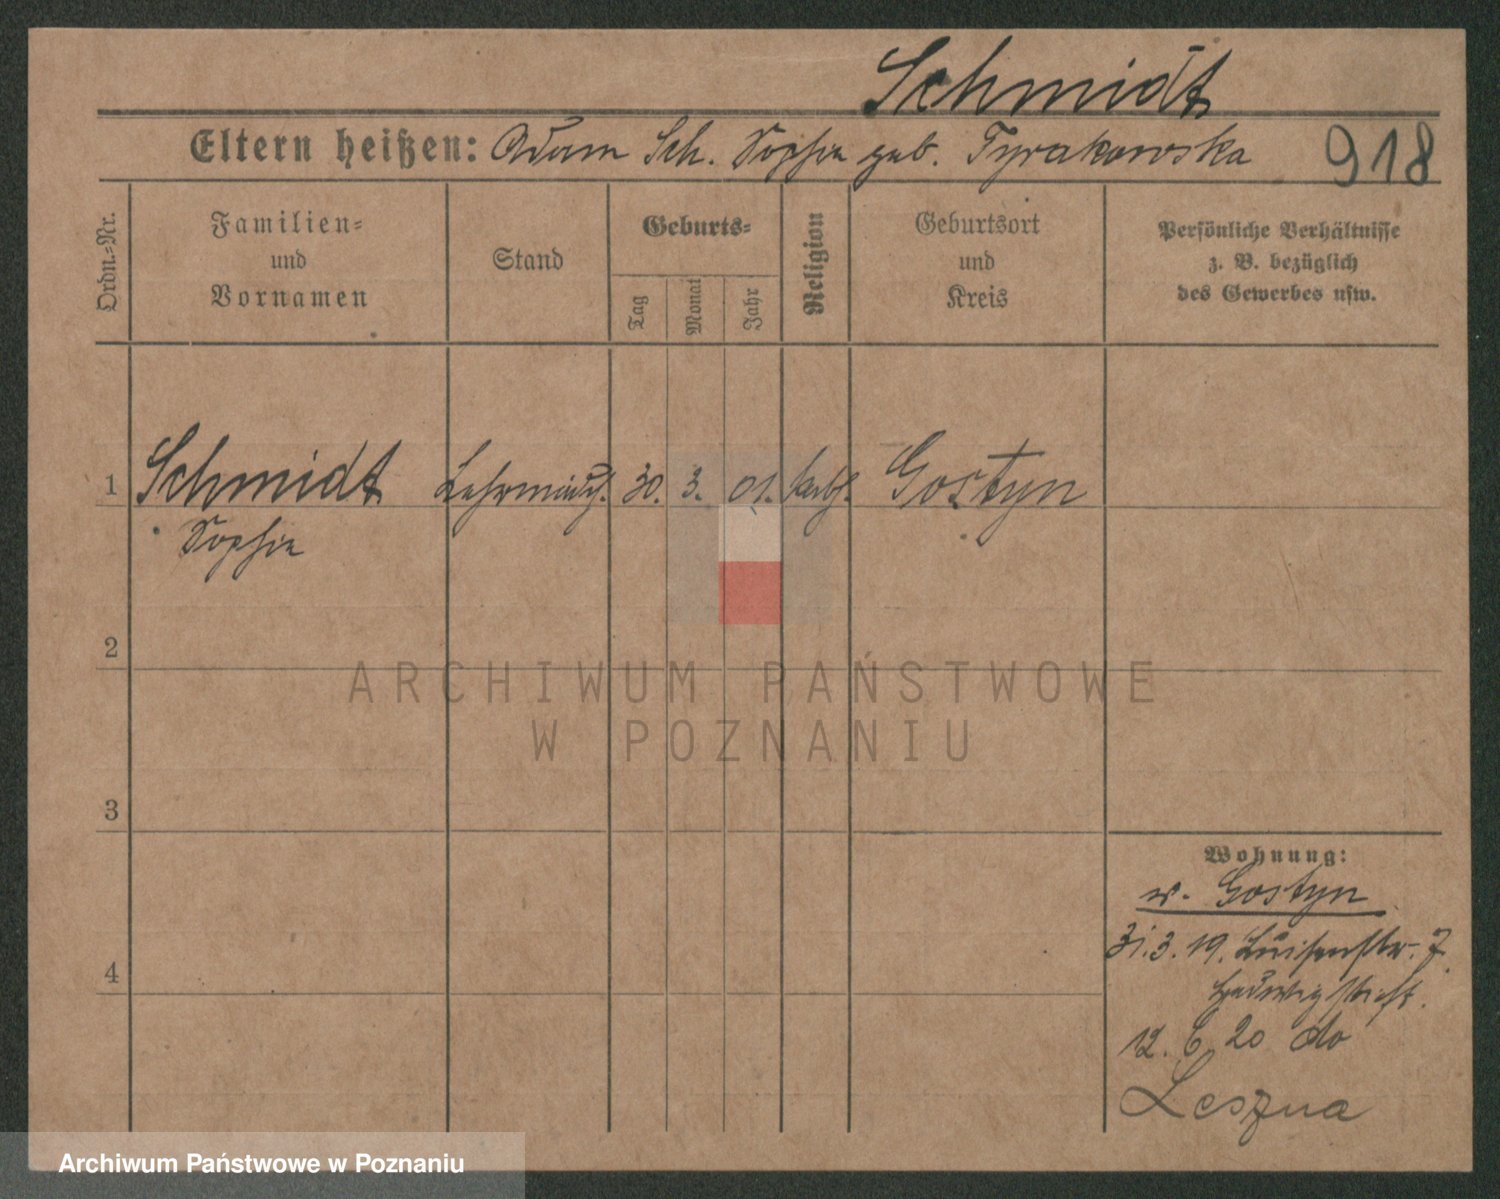 Schmidt
Eltern heißen: Adam Sch. Sophie geb. Tyrakowska
918
Ordn.-Nr.
Familien-
und
Vornamen
Stand
Geburts-
Tag
Monat
Jahr
Religion
Geburtsort
und
Kreis
Persönliche Verhältnisse
z. B. bezüglich
des Gewerbes usw.
1 Schmidt 30. 3. 01. kath. Gostyn
Sophie
2
ARCHIWUM PAŃSTWOWE
W POZNANIU
3
4
Wohnung:
v. Gostyn
31.3.19. Luisenstr. 7
Hedwigstift.
12. 6 20 do
Leszna
Archiwum Państwowe w Poznaniu